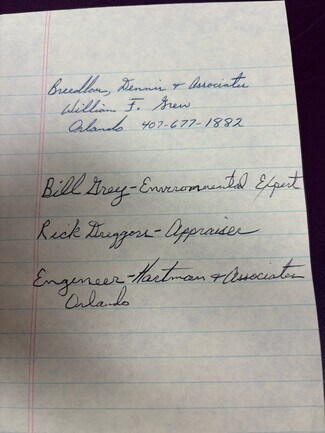 Breedlow, Dennis & Associates
William F. Grew
Orlando 407-677-1882
Bill Grey - Environmental Expert
Rick Dreggors - Appraiser
Engineer - Hartman & Associates
Orlando